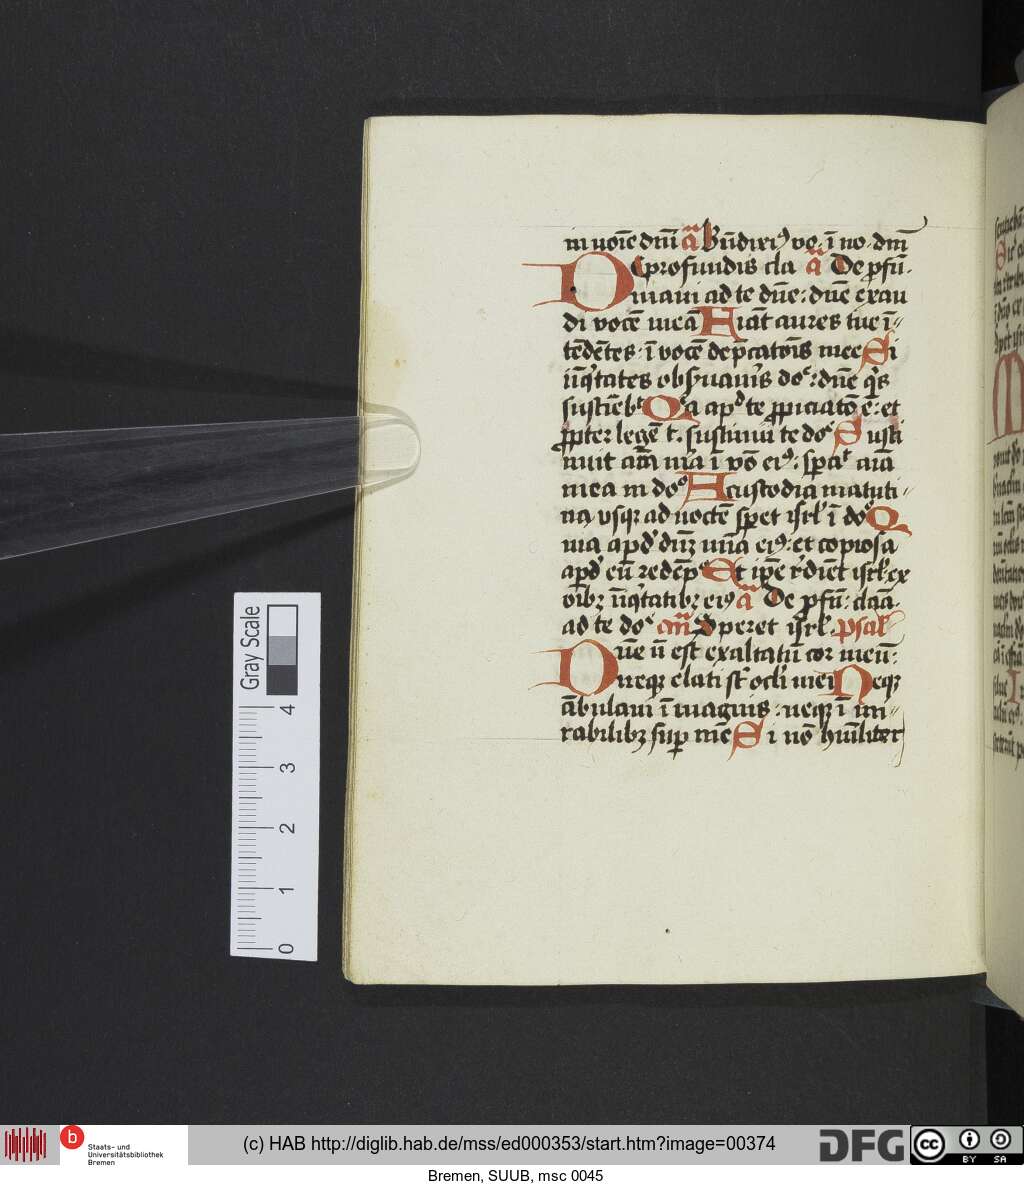 in noīe dn̄i a᷈ Bn̄dixiꝰ vo. ī no. dn̄i
De profundis cla a᷈ De ꝓfū.
maui ad te dn̄e: dn̄e exau
di vocē meā Fiāt aures tue ī
tēdētes. ī vocē dep̄catōis mee Si
iīq̇tates obẜuauīs doᵉ: dn̄e q̇s
sustīebᵗ Qa apᵈ te ꝓpiciatō ē: et
ꝓpter legē t. sustinui te doᵉ Susti
nuit aīa mīa ī vō eiꝰ: spaᵗ aīa
mea in doᵒ A custodia matuti
na vsqꝫ ad noctē spet isrl' ī doᵒ Q
uia apᵈ dnꝫ mīa eiꝰ: et copiosa
apᵈ eū redēpᵒ Et ipe rᵉdiet isrl' ex
oībꝫ iīq̇tatibꝫ eiꝰ a᷈ De ꝓfū: claā.
ad te doᵉ an᷈ Speret isrl'. psal'
Dn̄e n̄ est exaltatū cor meū:
neqꝫ elati st̄ ocl'i mei Neqꝫ
ābulaui ī magnis: neqꝫ ī mi
rabilibꝫ suꝑ mē Si nō huīliter
Gray Scale
0 1 2 3 4
b
Staats- und
Universitätsbibliothek
Bremen
(c) HAB http://diglib.hab.de/mss/ed000353/start.htm?image=00374
DFG
cc BY SA
Bremen, SUUB, msc 0045